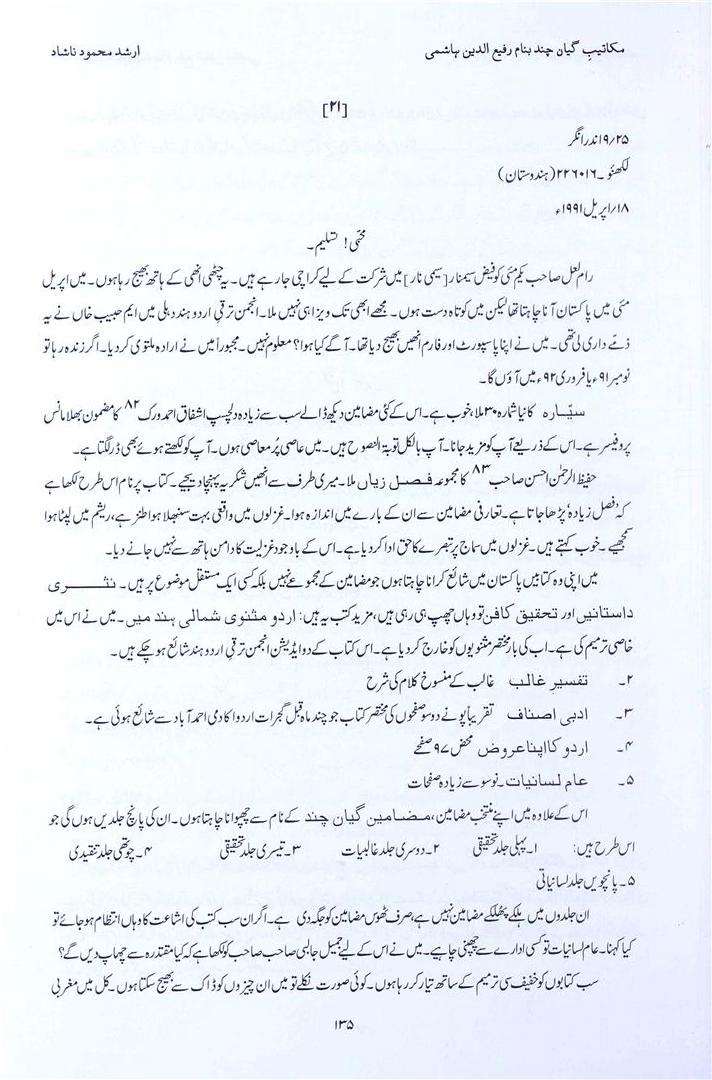 مکاتیبِ گیان چند بنام رفیع الدین ہاشمی
ارشد محمود ناشاد
[۲۱]
۹/۲۵ اندرانگر
لکھنؤ۔ ۲۲۶۰۱۶ (ہندوستان)
۱۸/اپریل ۱۹۹۱ء
محبّی! تسلیم۔
رام لعل صاحب یکم مئی کو فیض سیمنار [سیمی نار] میں شرکت کے لیے کراچی جا رہے ہیں۔ یہ چٹھی انھی کے ہاتھ بھیج رہا ہوں۔ میں اپریل
مئی میں پاکستان آنا چاہتا تھا لیکن میں کوتاہ دست ہوں۔ مجھے ابھی تک ویزا ہی نہیں ملا۔ انجمن ترقیِ اردو ہند دہلی میں ایم حبیب خاں نے یہ
ذمّے داری لی تھی۔ میں نے اپنا پاسپورٹ اور فارم انھیں بھیج دیا تھا۔ آگے کیا ہوا؟ معلوم نہیں۔ مجبوراً میں نے ارادہ ملتوی کر دیا۔ اگر زندہ رہا تو
نومبر ۹۱ء یا فروری ۹۲ء میں آؤں گا۔
سیّارہ کا نیا شارہ ۳۰ ملا، خوب ہے۔ اس کے کئی مضامین دیکھ ڈالے سب سے زیادہ دلچسپ اشفاق احمد ورک ۸۲ کا مضمون بھلا مانس
پروفیسر ہے۔ اس کے ذریعے آپ کو مزید جانا۔ آپ بالکل توبۃ النصوح ہیں۔ میں عاصی پُر معاصی ہوں۔ آپ کو لکھتے ہوئے بھی ڈر لگتا ہے۔
حفیظ الرحمٰن احسن صاحب ۸۳ کا مجموعہ فصلِ زیاں ملا۔ میری طرف سے انھیں شکریہ پہنچا دیجیے۔ کتاب پر نام اس طرح لکھا ہے
کہ ’فصل زیادہ‘ پڑھا جاتا ہے۔ تعارفی مضامین سے ان کے بارے میں اندازہ ہوا۔ غزلوں میں واقعی بہت سنبھلا ہوا طنز ہے، ریشم میں لپٹا ہوا
سمجھیے۔ خوب کہتے ہیں۔ غزلوں میں سماج پر تبصرے کا حق ادا کر دیا ہے۔ اس کے باوجود غزلیت کا دامن ہاتھ سے نہیں جانے دیا۔
میں اپنی وہ کتابیں پاکستان میں شائع کرانا چاہتا ہوں جو مضامین کے مجموعے نہیں بلکہ کسی ایک مستقل موضوع پر ہیں۔ نثری
داستانیں اور تحقیق کا فن تو وہاں چھپ ہی رہی ہیں، مزید کتب یہ ہیں: اردو مثنوی شمالی ہند میں۔ میں نے اس میں
خاصی ترمیم کی ہے۔ اب کی بار مختصر مثنویوں کو خارج کر دیا ہے۔ اس کتاب کے دو ایڈیشن انجمن ترقیِ اردو ہند شائع ہو چکے ہیں۔
۲۔ تفسیرِ غالب غالب کے منسوخ کلام کی شرح
۳۔ ادبی اصناف تقریباً پونے دو سو صفحوں کی مختصر کتاب جو چند ماہ قبل گجرات اردو اکادمی احمد آباد سے شائع ہوئی ہے۔
۴۔ اردو کا اپنا عروض محض ۹۷ صفحے
۵۔ عام لسانیات۔ نو سو سے زیادہ صفحات
اس کے علاوہ میں اپنے منتخب مضامین، مضامین گیان چند کے نام سے چھپوانا چاہتا ہوں۔ ان کی پانچ جلدیں ہوں گی جو
اس طرح ہیں: ۱۔ پہلی جلد تحقیقی ۲۔ دوسری جلد غالبیات ۳۔ تیسری جلد تحقیقی ۴۔ چوتھی جلد تنقیدی
۵۔ پانچویں جلد لسانیاتی
ان جلدوں میں ہلکے پھلکے مضامین نہیں ہے، صرف ٹھوس مضامین کو جگہ دی ہے۔ اگر ان سب کتب کی اشاعت کا وہاں انتظام ہو جائے تو
کیا کہنا۔ عام لسانیات تو کسی ادارے سے چھپنی چاہیے۔ میں نے اس کے لیے جمیل جالبی صاحب صاحب کو لکھا ہے کہ کیا مقتدرہ سے چھاپ دیں گے؟
سب کتابوں کو خفیف سی ترمیم کے ساتھ تیار کر رہا ہوں۔ کوئی صورت نکلے تو میں ان چیزوں کو ڈاک سے بھیج سکتا ہوں۔ کل میں مغربی
۱۳۵